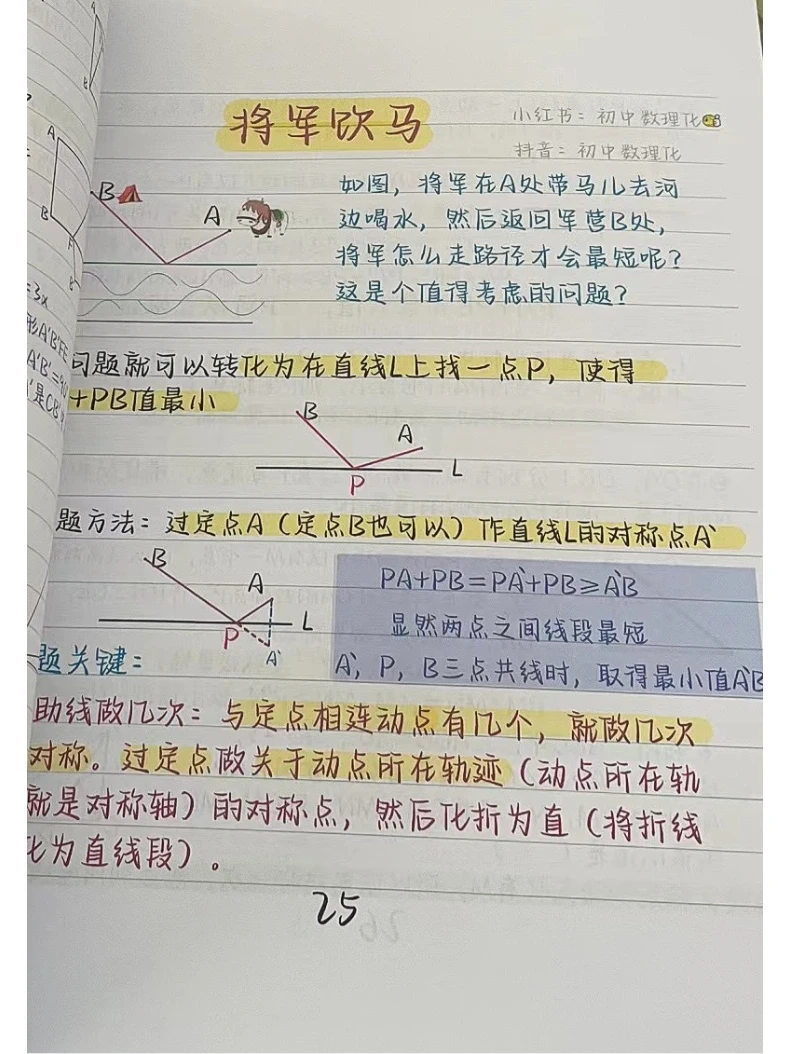 将军饮马
小红书：初中数理化
抖音：初中数理化
如图，将军在A处带马儿去河
边喝水，然后返回军营B处，
将军怎么走路径才会最短呢？
这是个值得考虑的问题？
B
A
问题就可以转化为在直线L上找一点P，使得
+PB值最小
B
A
P
L
题方法：过定点A（定点B也可以）作直线L的对称点A`
B
A
P
L
A`
PA+PB=PA`+PB≥A`B
显然两点之间线段最短
A`，P，B三点共线时，取得最小值A`B
题关键：
助线做几次：与定点相连动点有几个，就做几次
对称。过定点做关于动点所在轨迹（动点所在轨
就是对称轴）的对称点，然后化折为直（将折线
化为直线段）。
25
A
B
=3x